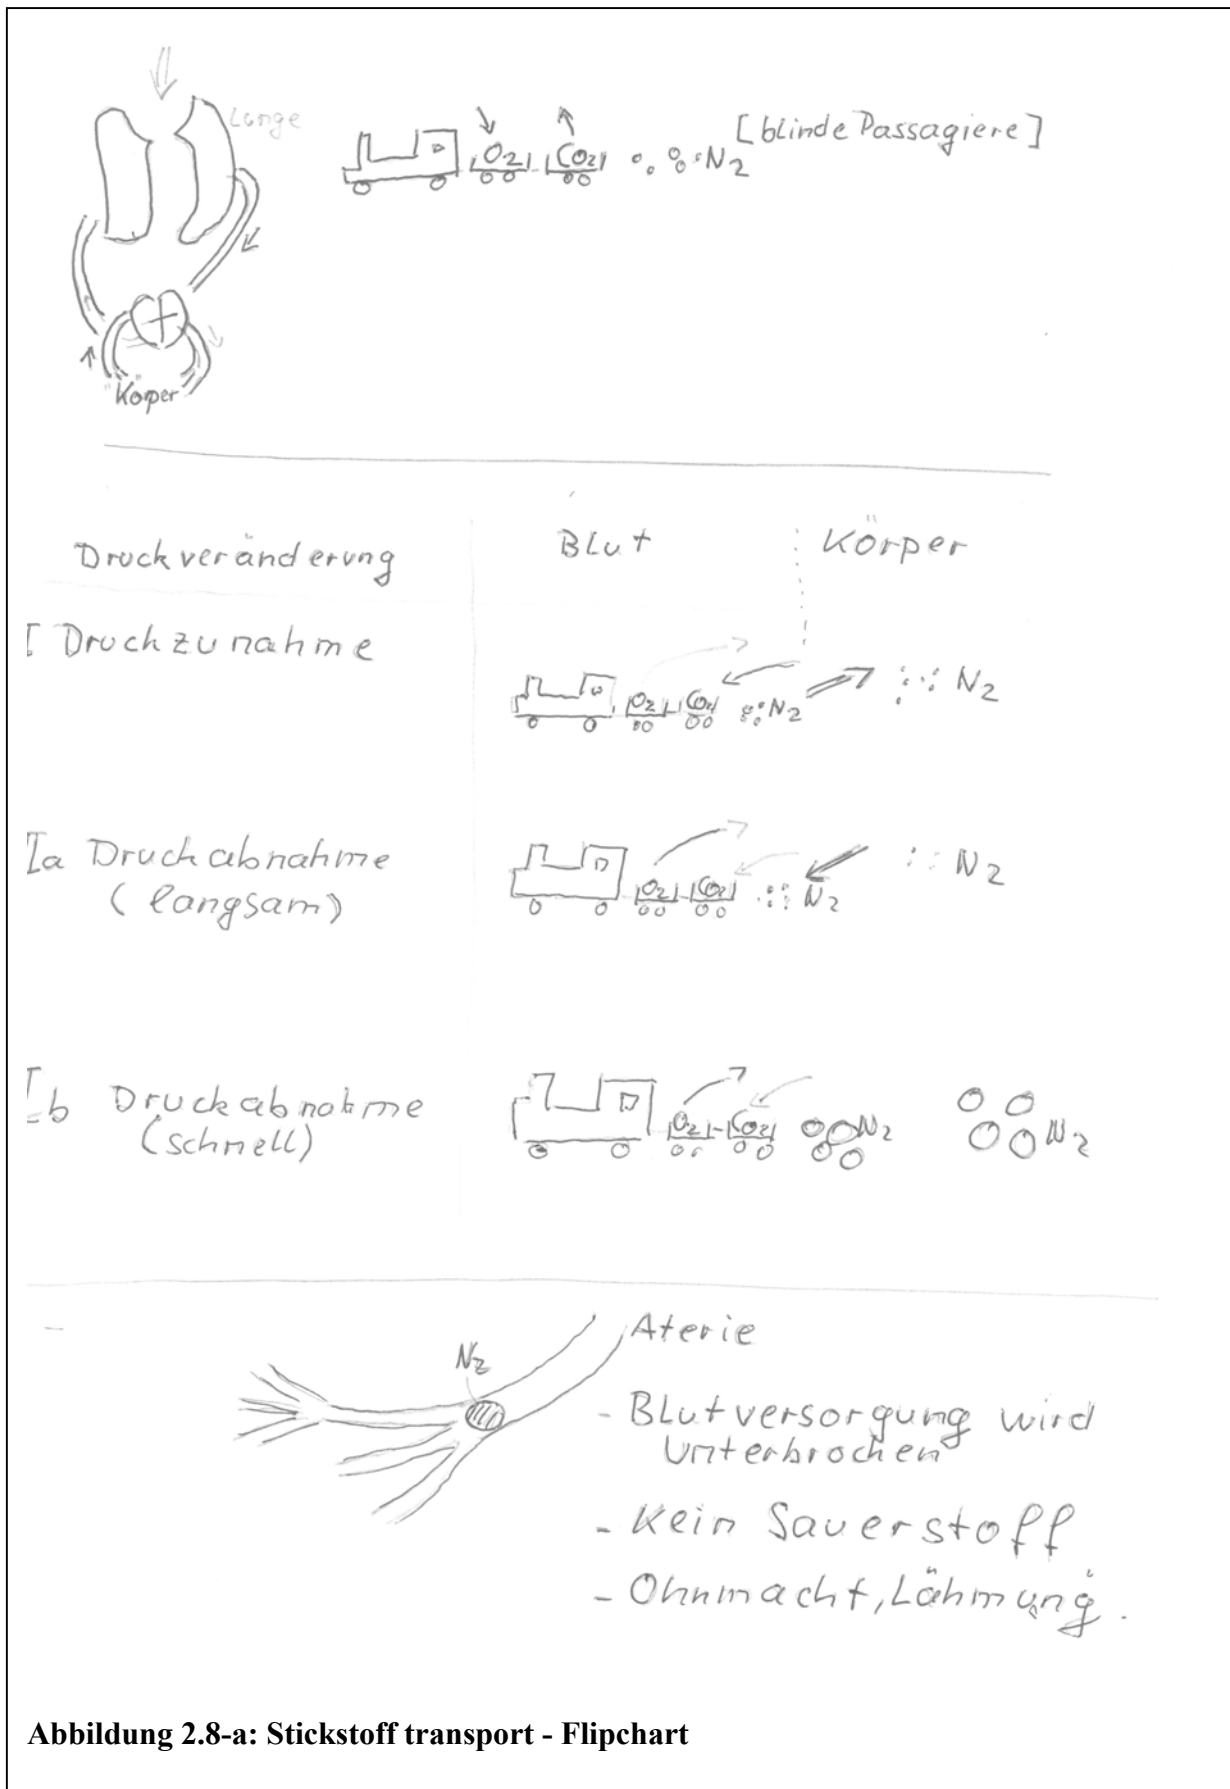 Lunge
O2 CO2 N2 [blinde Passagiere]
"Körper"
Druckveränderung Blut Körper
I Druckzunahme
O2 CO2 N2 N2
Ia Druckabnahme
(langsam)
O2 CO2 N2 N2
Ib Druckabnahme
(schnell)
O2 CO2 N2 N2
Aterie
N2
- Blutversorgung wird
Unterbrochen
- Kein Sauerstoff
- Ohnmacht, Lähmung.
Abbildung 2.8-a: Stickstoff transport - Flipchart